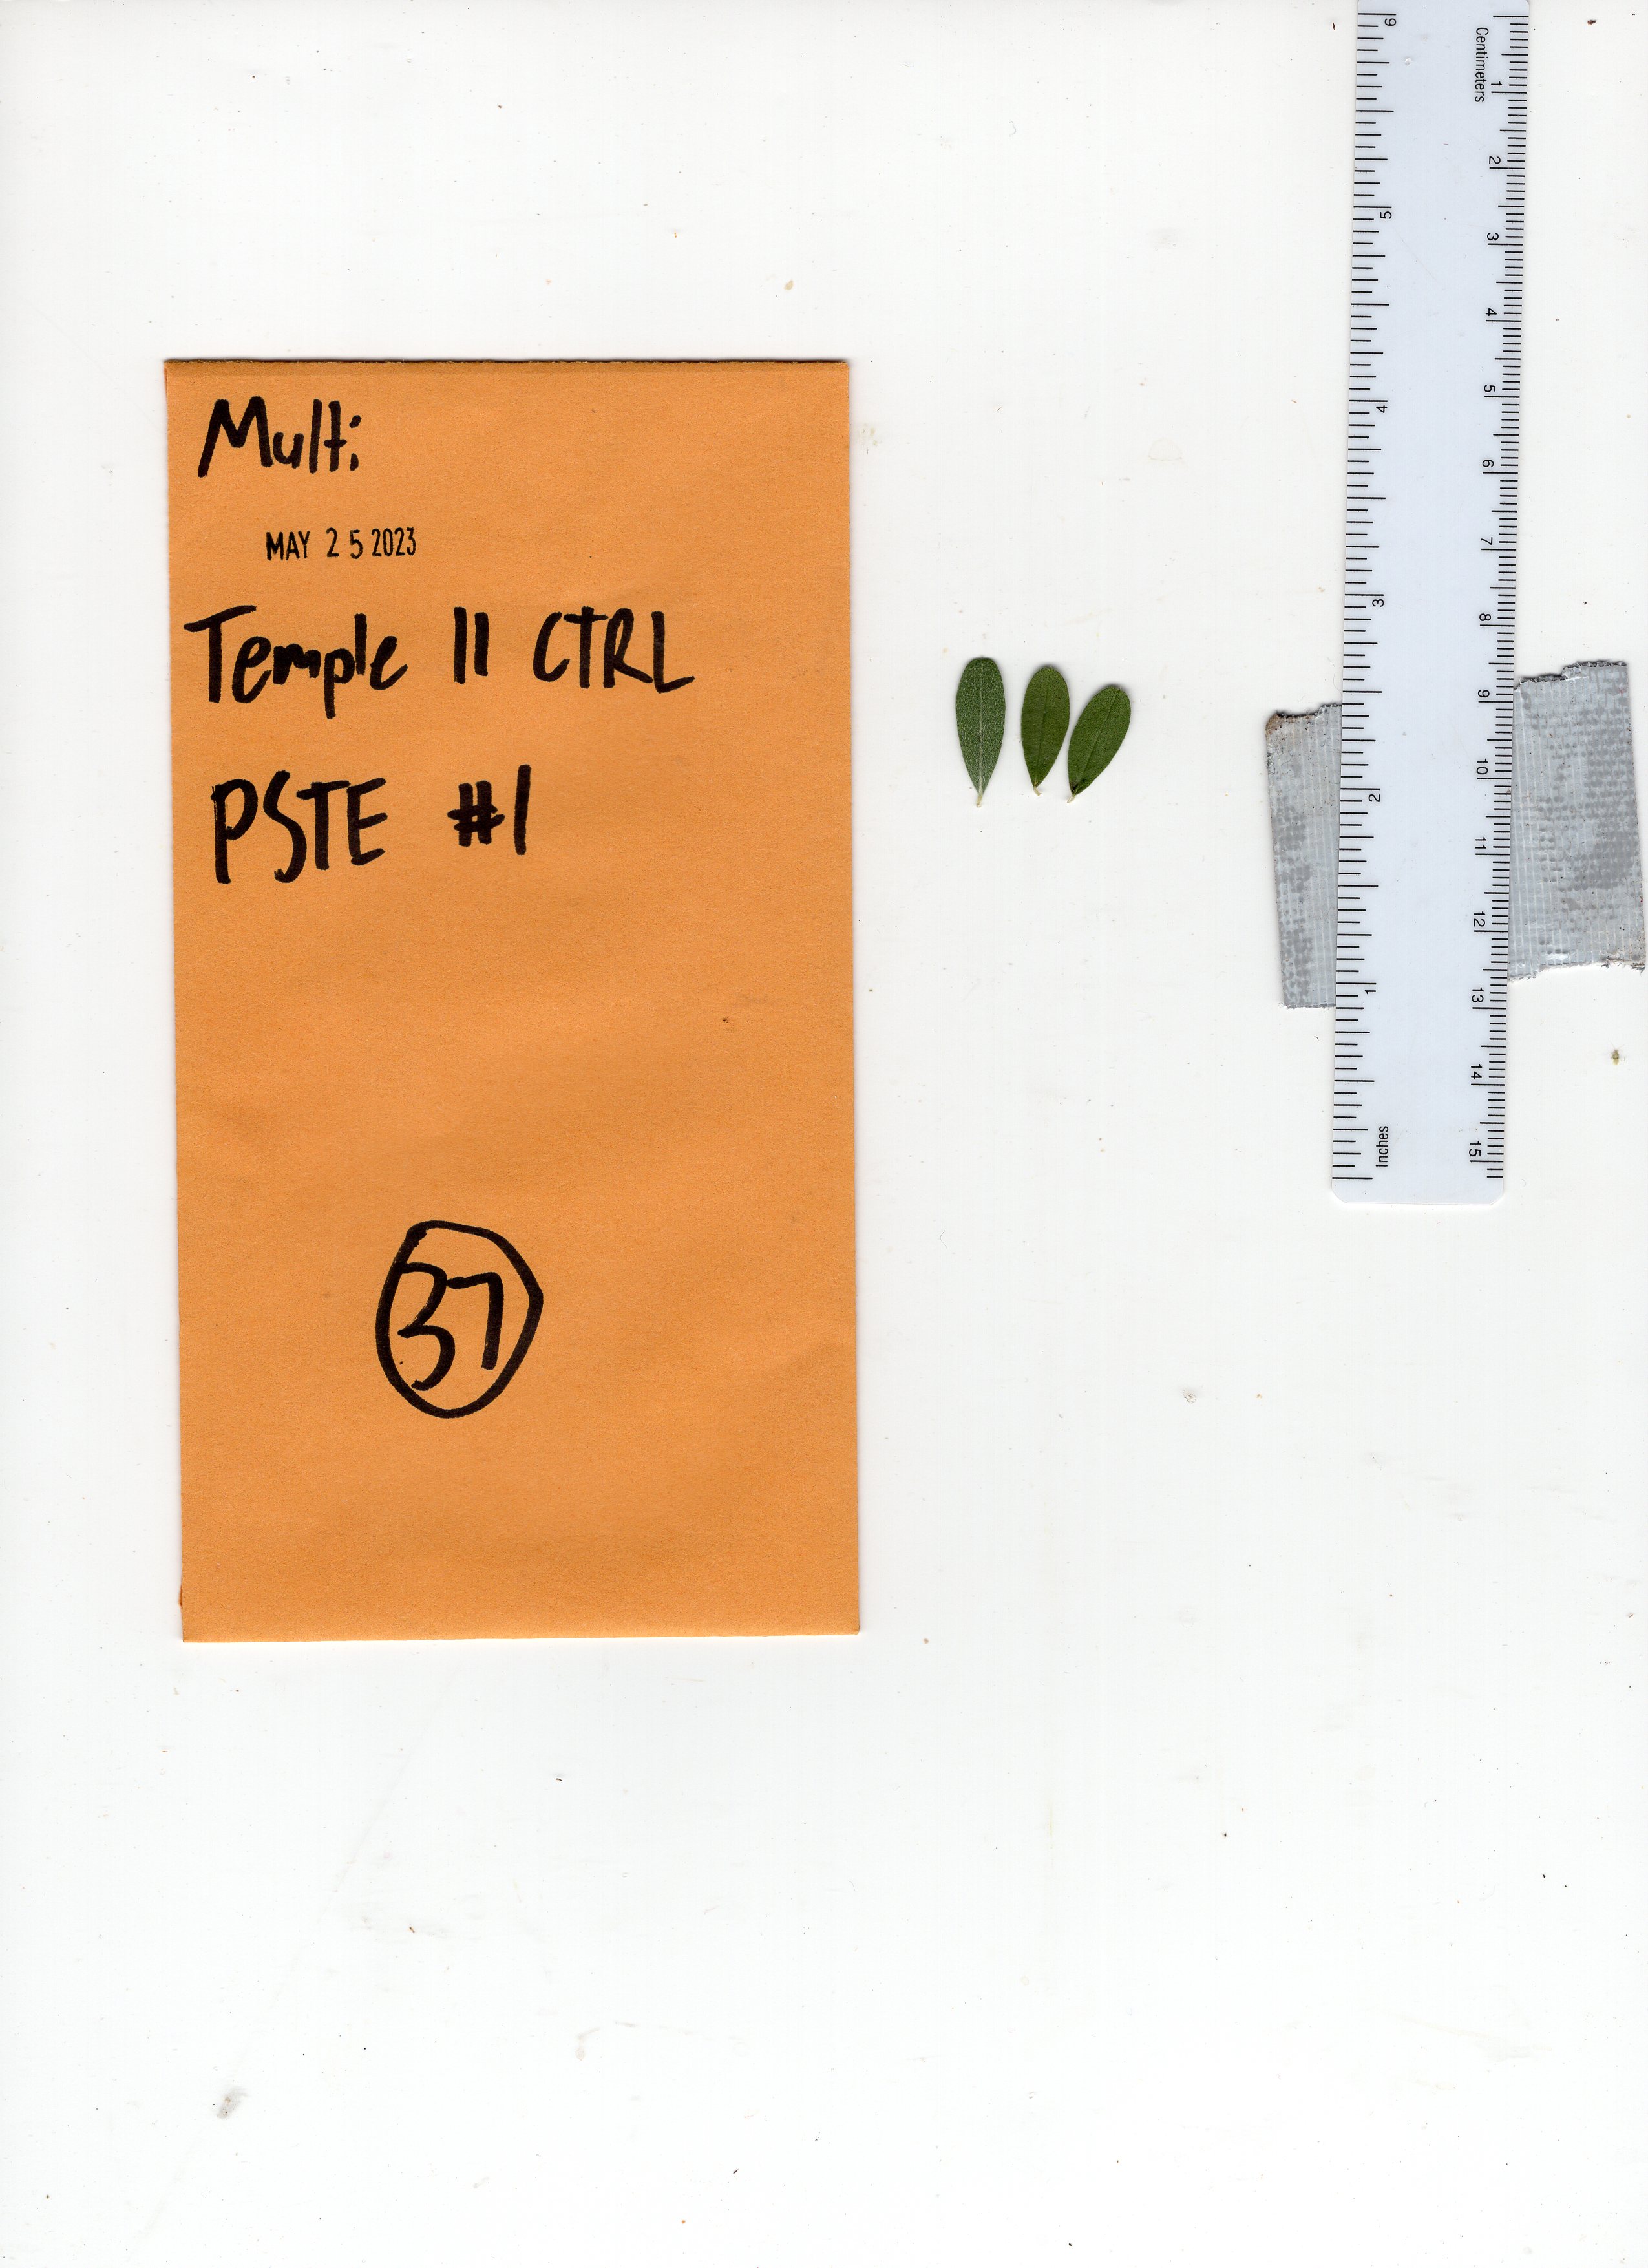 Multi
MAY 25 2023
Temple 11 CTRL
PSTE #1
37
Centimeters
1
2
3
4
5
6
7
8
9
10
11
12
13
14
15
6
5
4
3
2
1
Inches